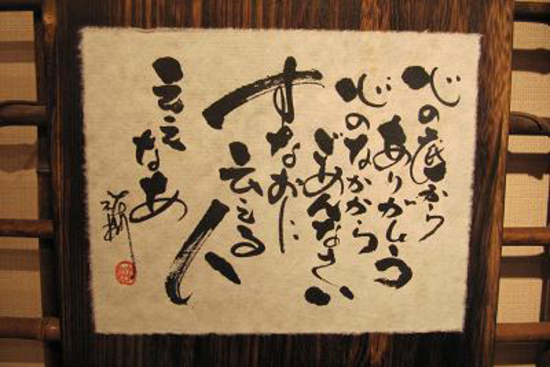 心の底から
ありがとう
心のなかから
ごめんなさい
すなおに
云える人
ええなあ